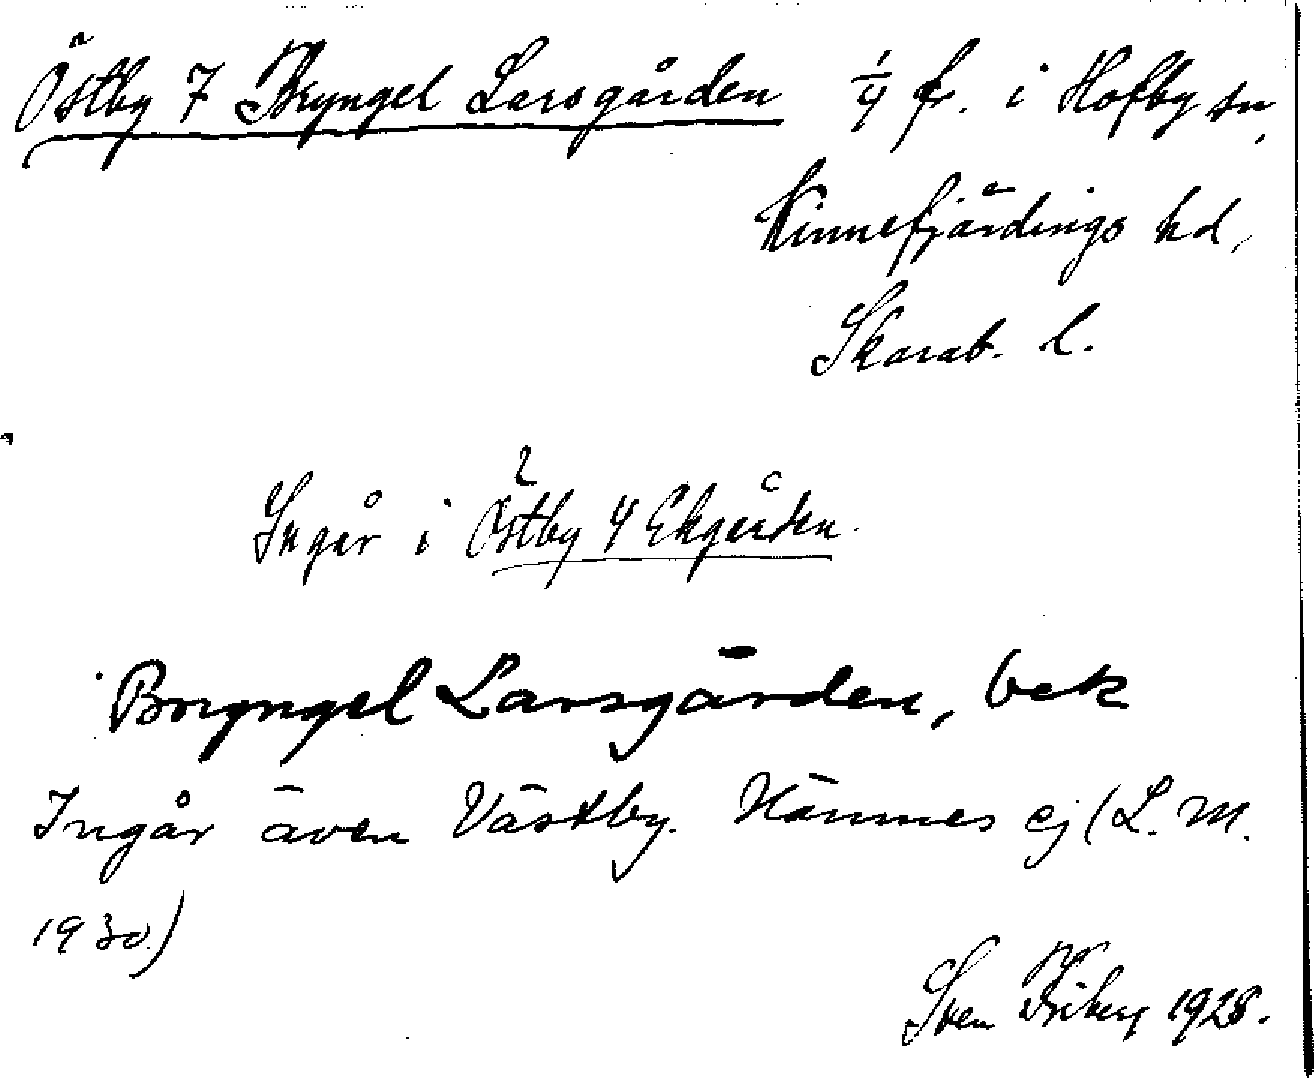 Östby 7 Bryngel Larsgården 1/4 fr. i Hofby sn,
Kinnefjärdings hd,
Skarab. l.
Ingår i Östby 4 Ekgården.
Bryngel Larsgården, bek
Ingår även Västby. Nämnes ej (L. M.
1930)
Sven Friberg 1928.